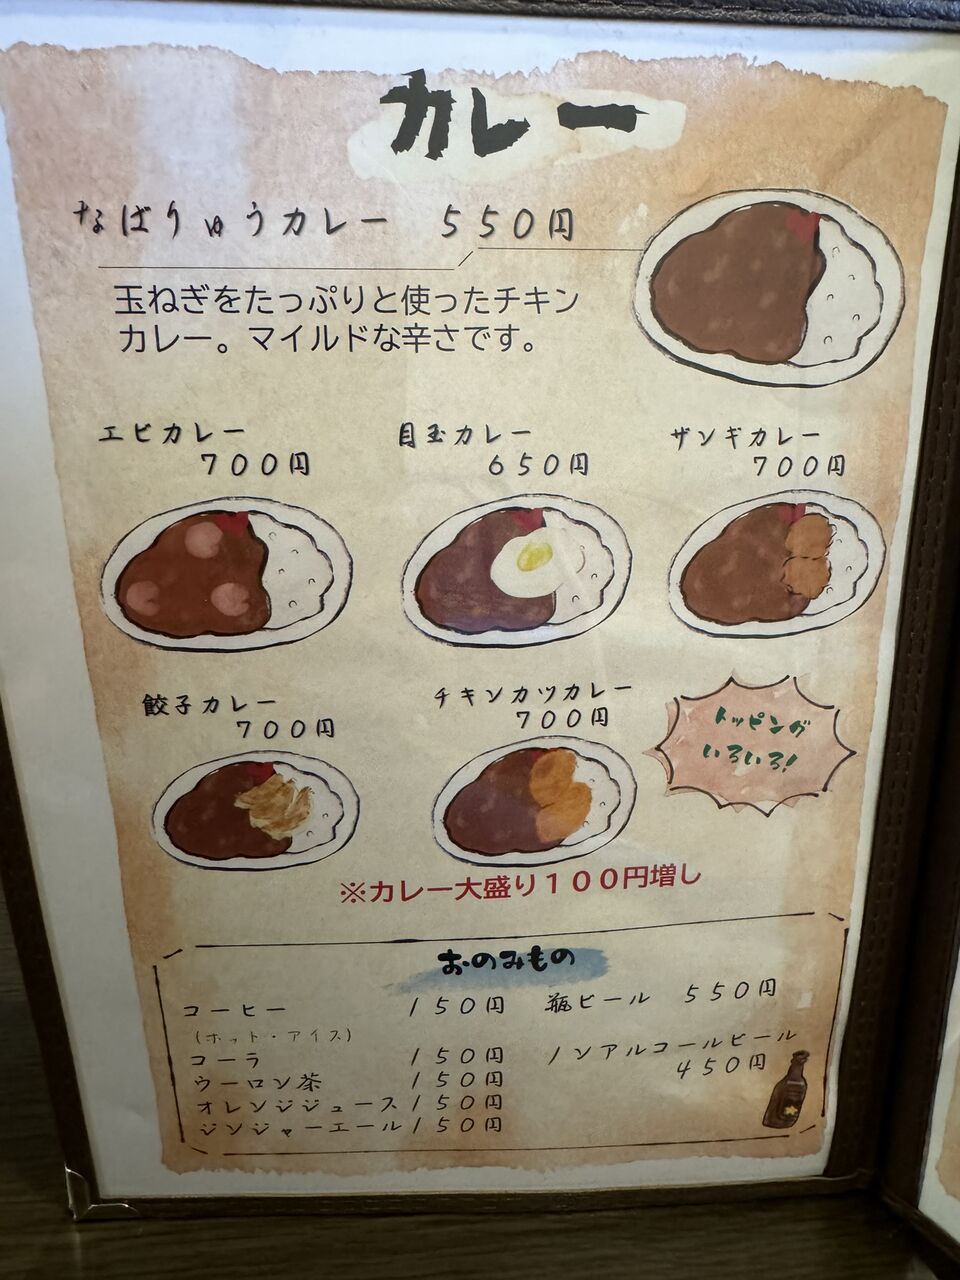 カレー
なばりゅうカレー 550円
玉ねぎをたっぷりと使ったチキン
カレー。マイルドな辛さです。
エビカレー
700円
目玉カレー
650円
ザンギカレー
700円
餃子カレー
700円
チキンカツカレー
700円
トッピング
いろいろ!
※カレー大盛り100円増し
おのみもの
コーヒー 150円
(ホット・アイス)
コーラ 150円
ウーロン茶 150円
オレンジジュース 150円
ジンジャーエール 150円
瓶ビール 550円
ノンアルコールビール
450円